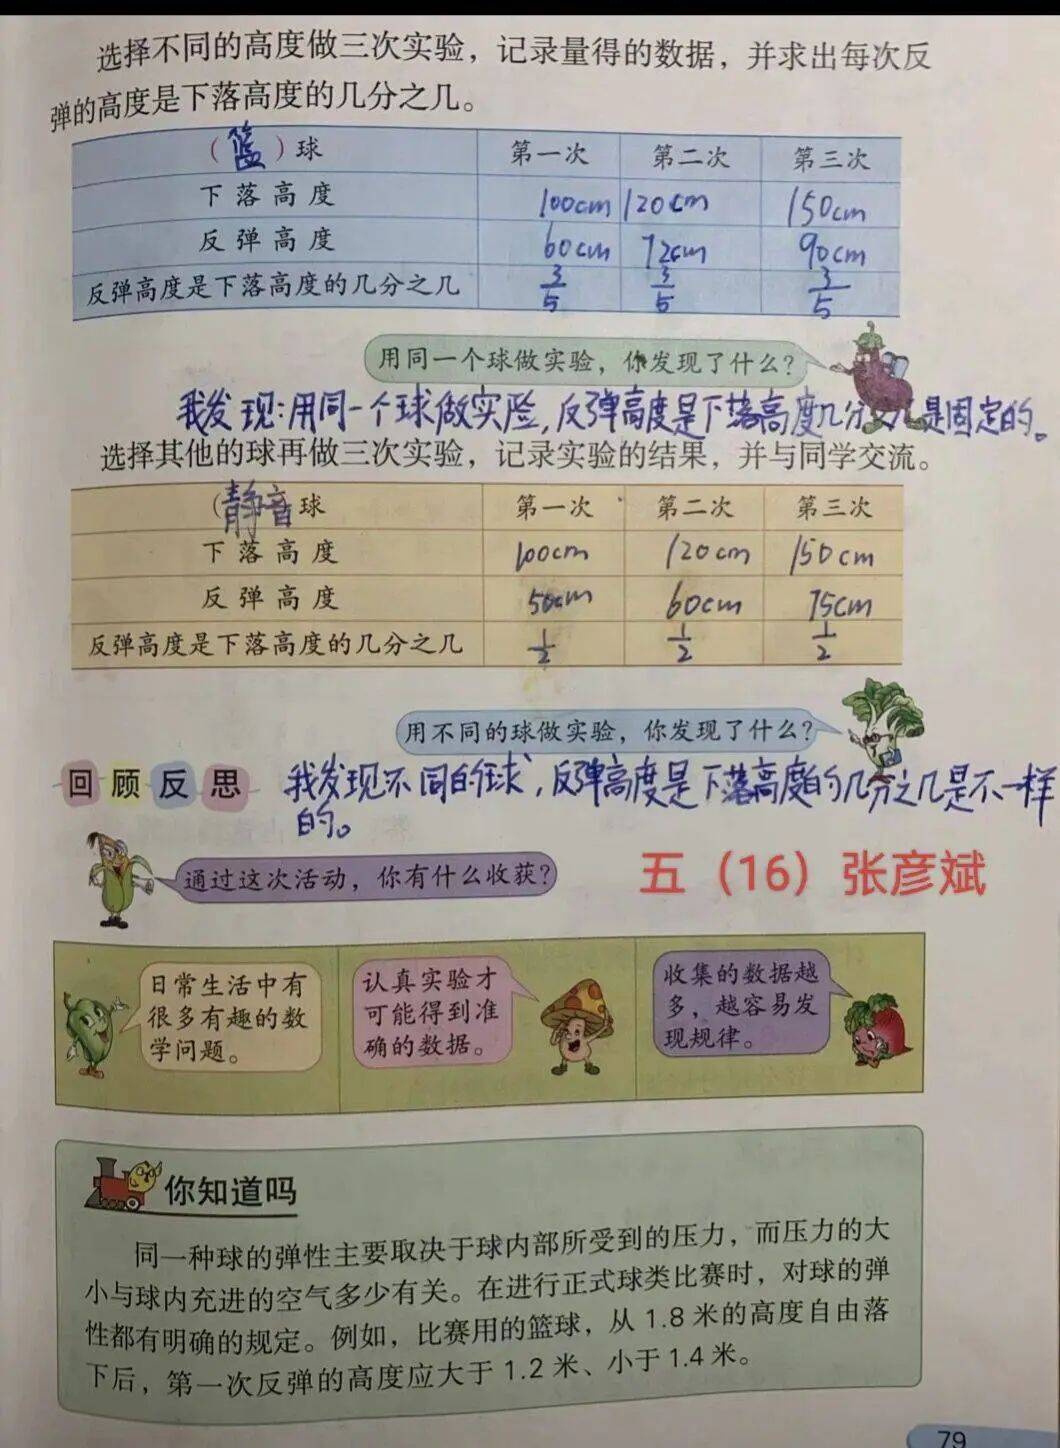 选择不同的高度做三次实验，记录量得的数据，并求出每次反
弹的高度是下落高度的几分之几。
（篮）球 第一次 第二次 第三次
下落高度 100cm 120cm 150cm
反弹高度 60cm 72cm 90cm
反弹高度是下落高度的几分之几 3/5 3/5 3/5
用同一个球做实验，你发现了什么？
我发现:用同一个球做实险,反弹高度是下落高度几分之几是固定的。
选择其他的球再做三次实验，记录实验的结果，并与同学交流。
（静音球 第一次 第二次 第三次
下落高度 100cm 120cm 150cm
反弹高度 50cm 60cm 75cm
反弹高度是下落高度的几分之几 1/2 1/2 1/2
用不同的球做实验，你发现了什么？
回顾反思
我发现不同的球,反弹高度是下落高度的几分之几是不一样
的。
通过这次活动，你有什么收获？
五（16）张彦斌
日常生活中有
很多有趣的数
学问题。
认真实验才
可能得到准
确的数据。
收集的数据越
多，越容易发
现规律。
你知道吗
同一种球的弹性主要取决于球内部所受到的压力，而压力的大
小与球内充进的空气多少有关。在进行正式球类比赛时，对球的弹
性都有明确的规定。例如，比赛用的篮球，从 1.8 米的高度自由落
下后，第一次反弹的高度应大于 1.2 米、小于 1.4 米。
79